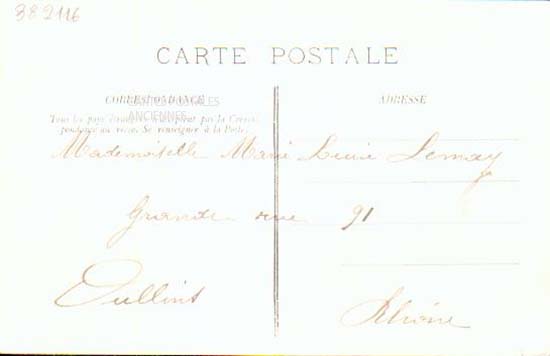 382116
CARTE POSTALE
CORRESPONDANCE
ADRESSE
CARTES POSTALES
ANCIENNES
Tous les pays étrangers n'acceptent pas la Corres-
pondance au verso. Se renseigner à la Poste.
Mademoiselle Marie Louise Lemay
Grande rue 91
Oullins
Rhône